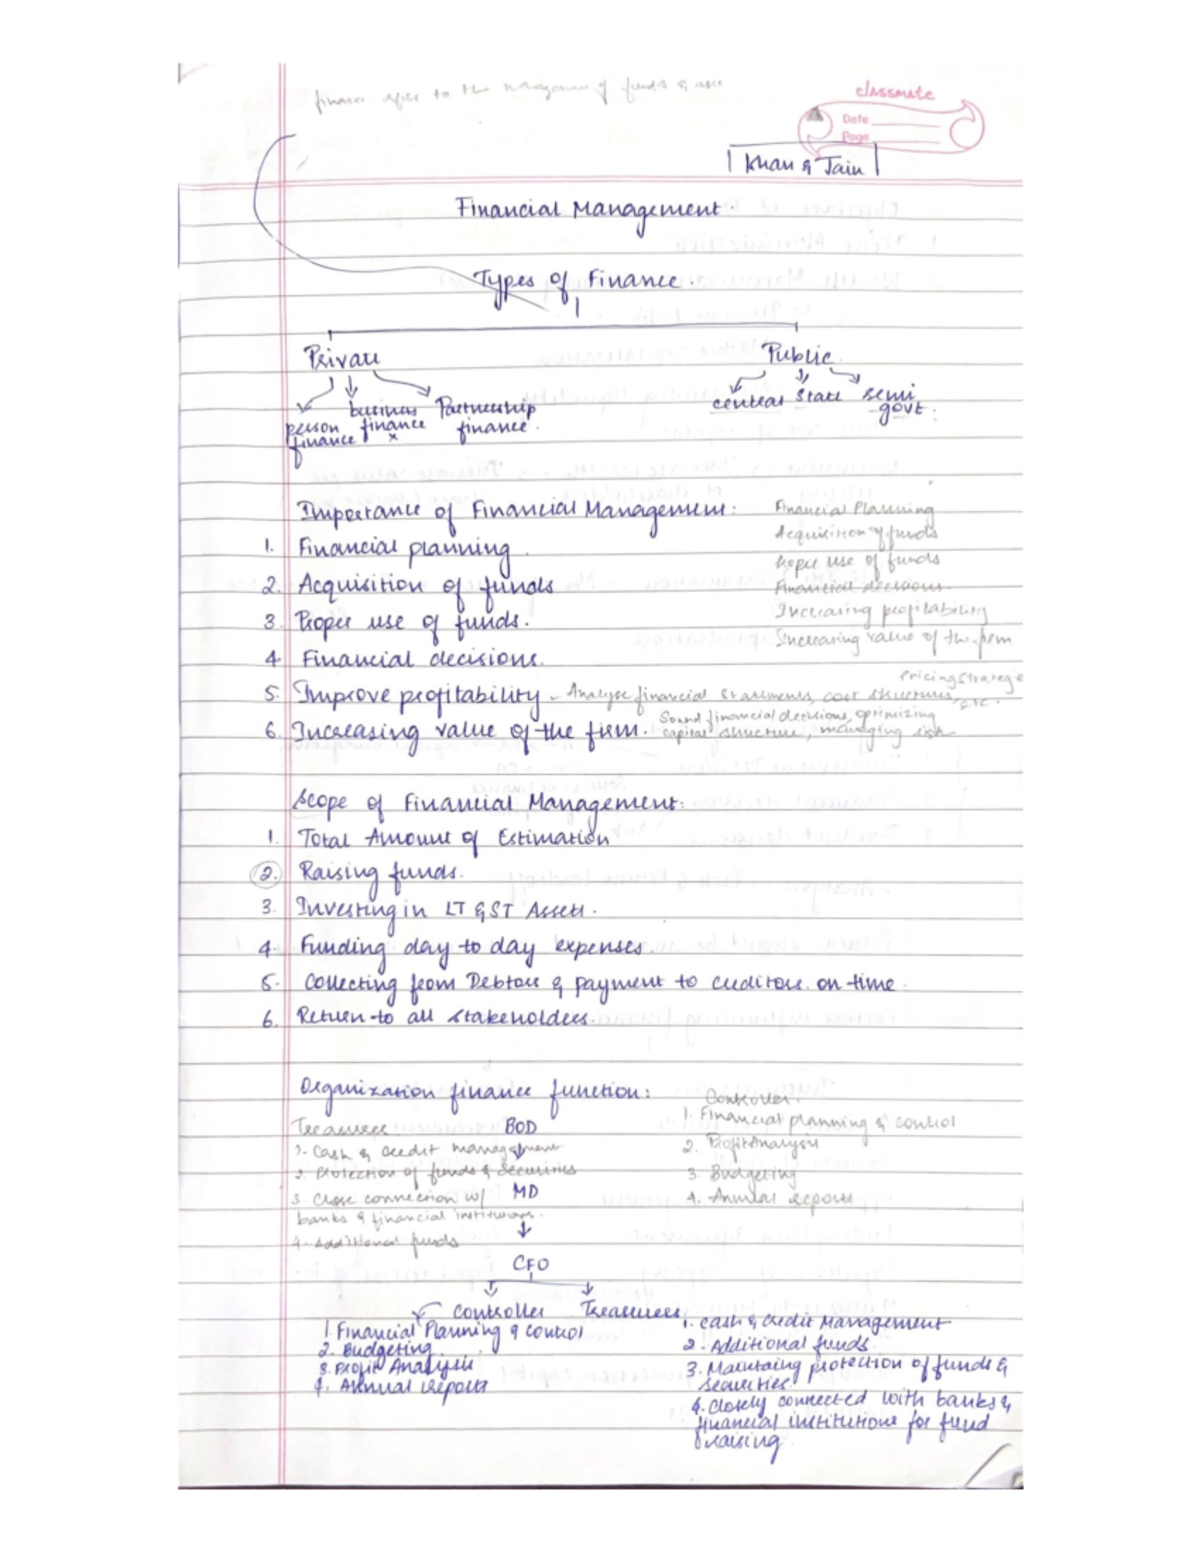 finance refers to the management of funds &
classmate
Date
Page
Khan & Jain
Financial Management.
Types of Finance.
Private Public
person finance business finance x Partnership finance. central State semi govt.
Importance of Financial Management:
1. Financial planning.
2. Acquisition of funds
3. Proper use of funds.
4. Financial decisions.
5. Improve profitability - Analyse financial statements, cost structures, Pricing strategie etc.
6. Increasing value of the firm. Sound financial decisions, optimizing capital structure, managing risk
Financial Planning
Acquisition of funds
Proper use of funds
Financial decisions.
Increasing profitability
Increasing value of the firm
Scope of Financial Management:
1. Total Amount of Estimation
2. Raising funds.
3. Investing in LT & ST Assets.
4. Funding day to day expenses.
5. Collecting from Debtors & payment to creditors on time.
6. Return to all stakeholders.
Organization finance function:
Treasurer
1. Cash & credit management
2. Protection of funds & Securities
3. Close connection w/
banks & financial institutions.
4. Additional funds
BOD
MD
CFO
Controller.
1. Financial planning & control
2. Profit Analysis
3. Budgeting
4. Annual reports
Controller Treasurer
1. Financial Planning & control
2. Budgeting.
3. Profit Analysis
4. Annual reports
1. Cash & Credit Management
2. Additional funds.
3. Maintaing protection of funds &
securities.
4. Closely connected with banks &
financial institutions for fund
raising